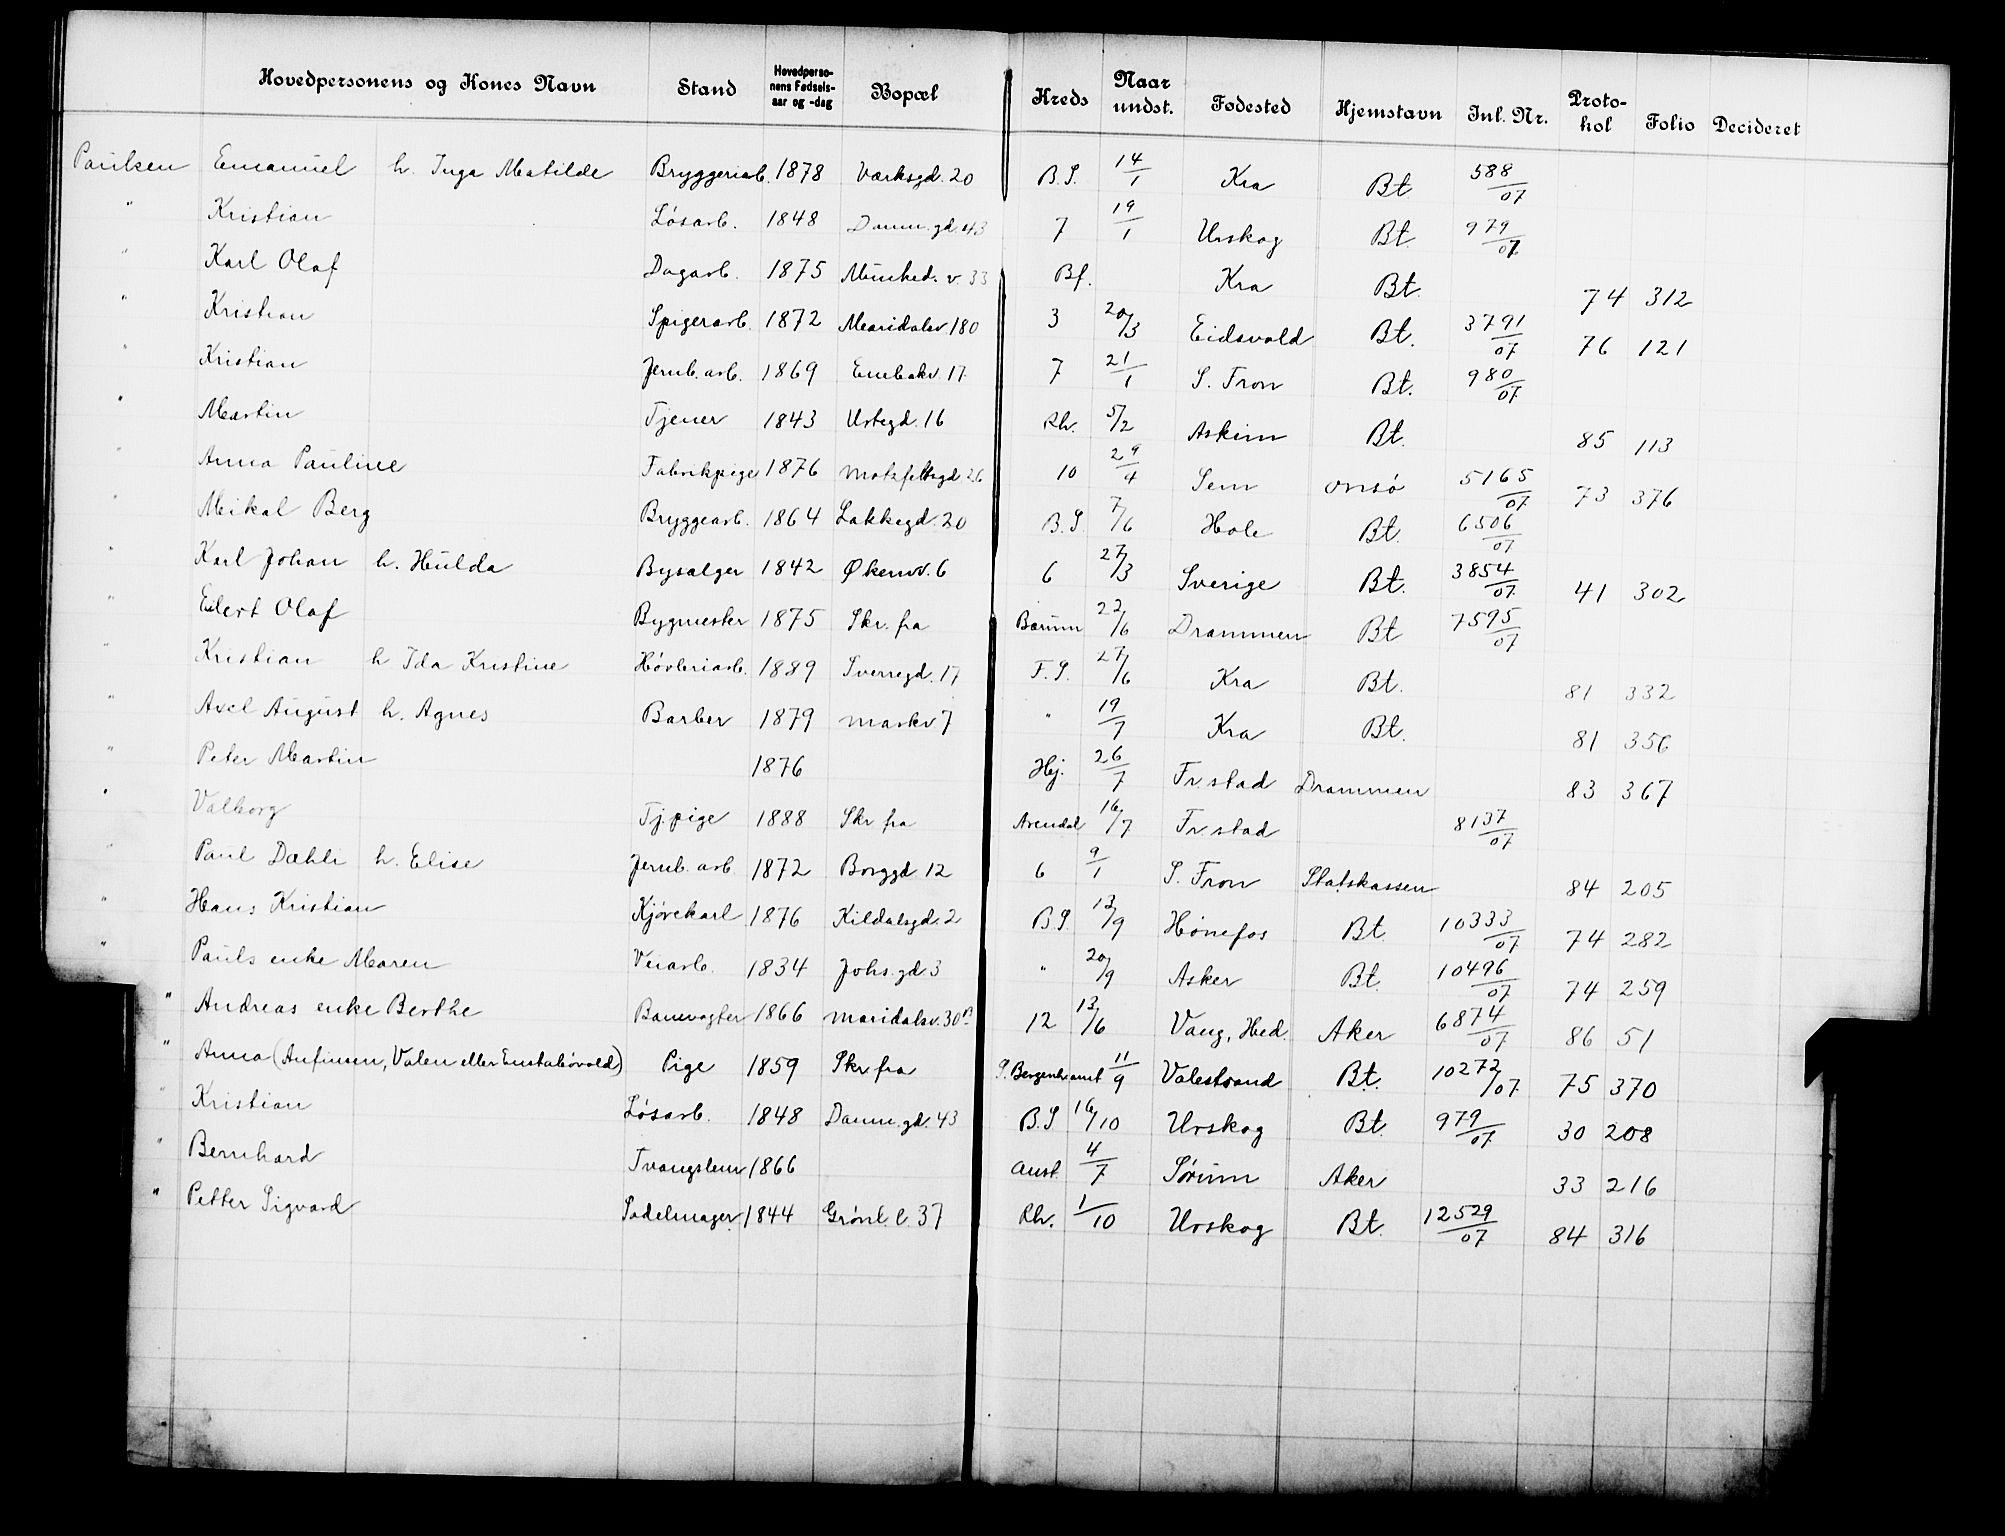 Hovedpersonens og Kones Navn Stand Hovedperso-nens Fødsels-aar og -dag Bopæl Kreds Naar undst. Fødested Hjemstavn Inl. Nr. Proto-kol Folio Decideret
Paulsen Emanuel h. Inga Matilde Bryggeriarb. 1878 Værksgd. 20 B.S. 14/1 Kra Bt. 588/07
" Kristian Løsarb. 1848 Damm.gd. 43 7 19/1 Urskog Bt. 979/07
" Karl Olaf Dagarb. 1875 Munked. v. 33 Bf. Kra Bt. 74 312
" Kristian Spigerarb. 1872 Maridalsv 180 3 20/3 Eidsvold Bt. 3791/07 76 121
" Kristian Jernb. arb. 1869 Enebakv. 17 7 21/1 S. Fron Bt. 980/07
" Martin Tjener 1843 Urtegd. 16 Rh. 5/2 Askim Bt. 85 113
" Anna Pauline Fabrikpige 1876 Motzfeltsgd. 26 10 29/4 Sem Onsø 5165/07 73 376
" Mikal Berg Bryggearb. 1864 Lakkegd. 20 B.S. 7/6 Hole Bt. 6506/07
" Karl Johan h. Hulda Bysælger 1842 Økernv. 6 6 27/3 Sverige Bt. 3854/07 41 302
" Eilert Olaf Bygmester 1875 Skr. fra Bærum 22/6 Drammen Bt 7595/07
" Kristian h Ida Kristine Høvleriarb. 1889 Sverregd. 17 F.S. 27/6 Kra Bt. 81 332
" Axel August h. Agnes Barber 1879 Markv 7 " 19/7 Kra Bt. 81 356
" Peter Martin 1876 Hj. 26/7 Fr.stad Drammen 83 367
" Valborg Tj.pige 1888 Skr fra Arendal 16/7 Fr.stad 8137/07
" Paul Dæhli h. Elise Jernb. arb 1872 Borggd 12 6 9/1 S. Fron Statskassen 84 205
" Hans Kristian Kjørekarl 1876 Kildalsgd. 2 B.S. 13/9 Hønefos Bt 10333/07 74 282
" Pauls enke Maren Veiarb. 1834 Johs.gd 3 " 20/9 Asker Bt. 10496/07 74 259
" Andreas enke Berthe Banevogter 1866 Maridalsv. 30 B 12 13/6 Vang, Hed. Aker 6874/07 86 51
" Anna (Anfinsen, Valen eller ) Pige 1859 Skr fra S. Bergenh amt 11/9 Valestrand Bt. 10272/07 75 370
" Kristian Løsarb. 1848 Damm.gd. 43 B.S 16/10 Urskog Bt. 979/07 30 208
" Bernhard Tvangslem 1866 Anst. 4/7 Sørum Aker 33 216
" Petter Sigvard Sadelmager 1844 Grønl. l. 37 Rh. 1/10 Urskog Bt. 12529/07 84 316